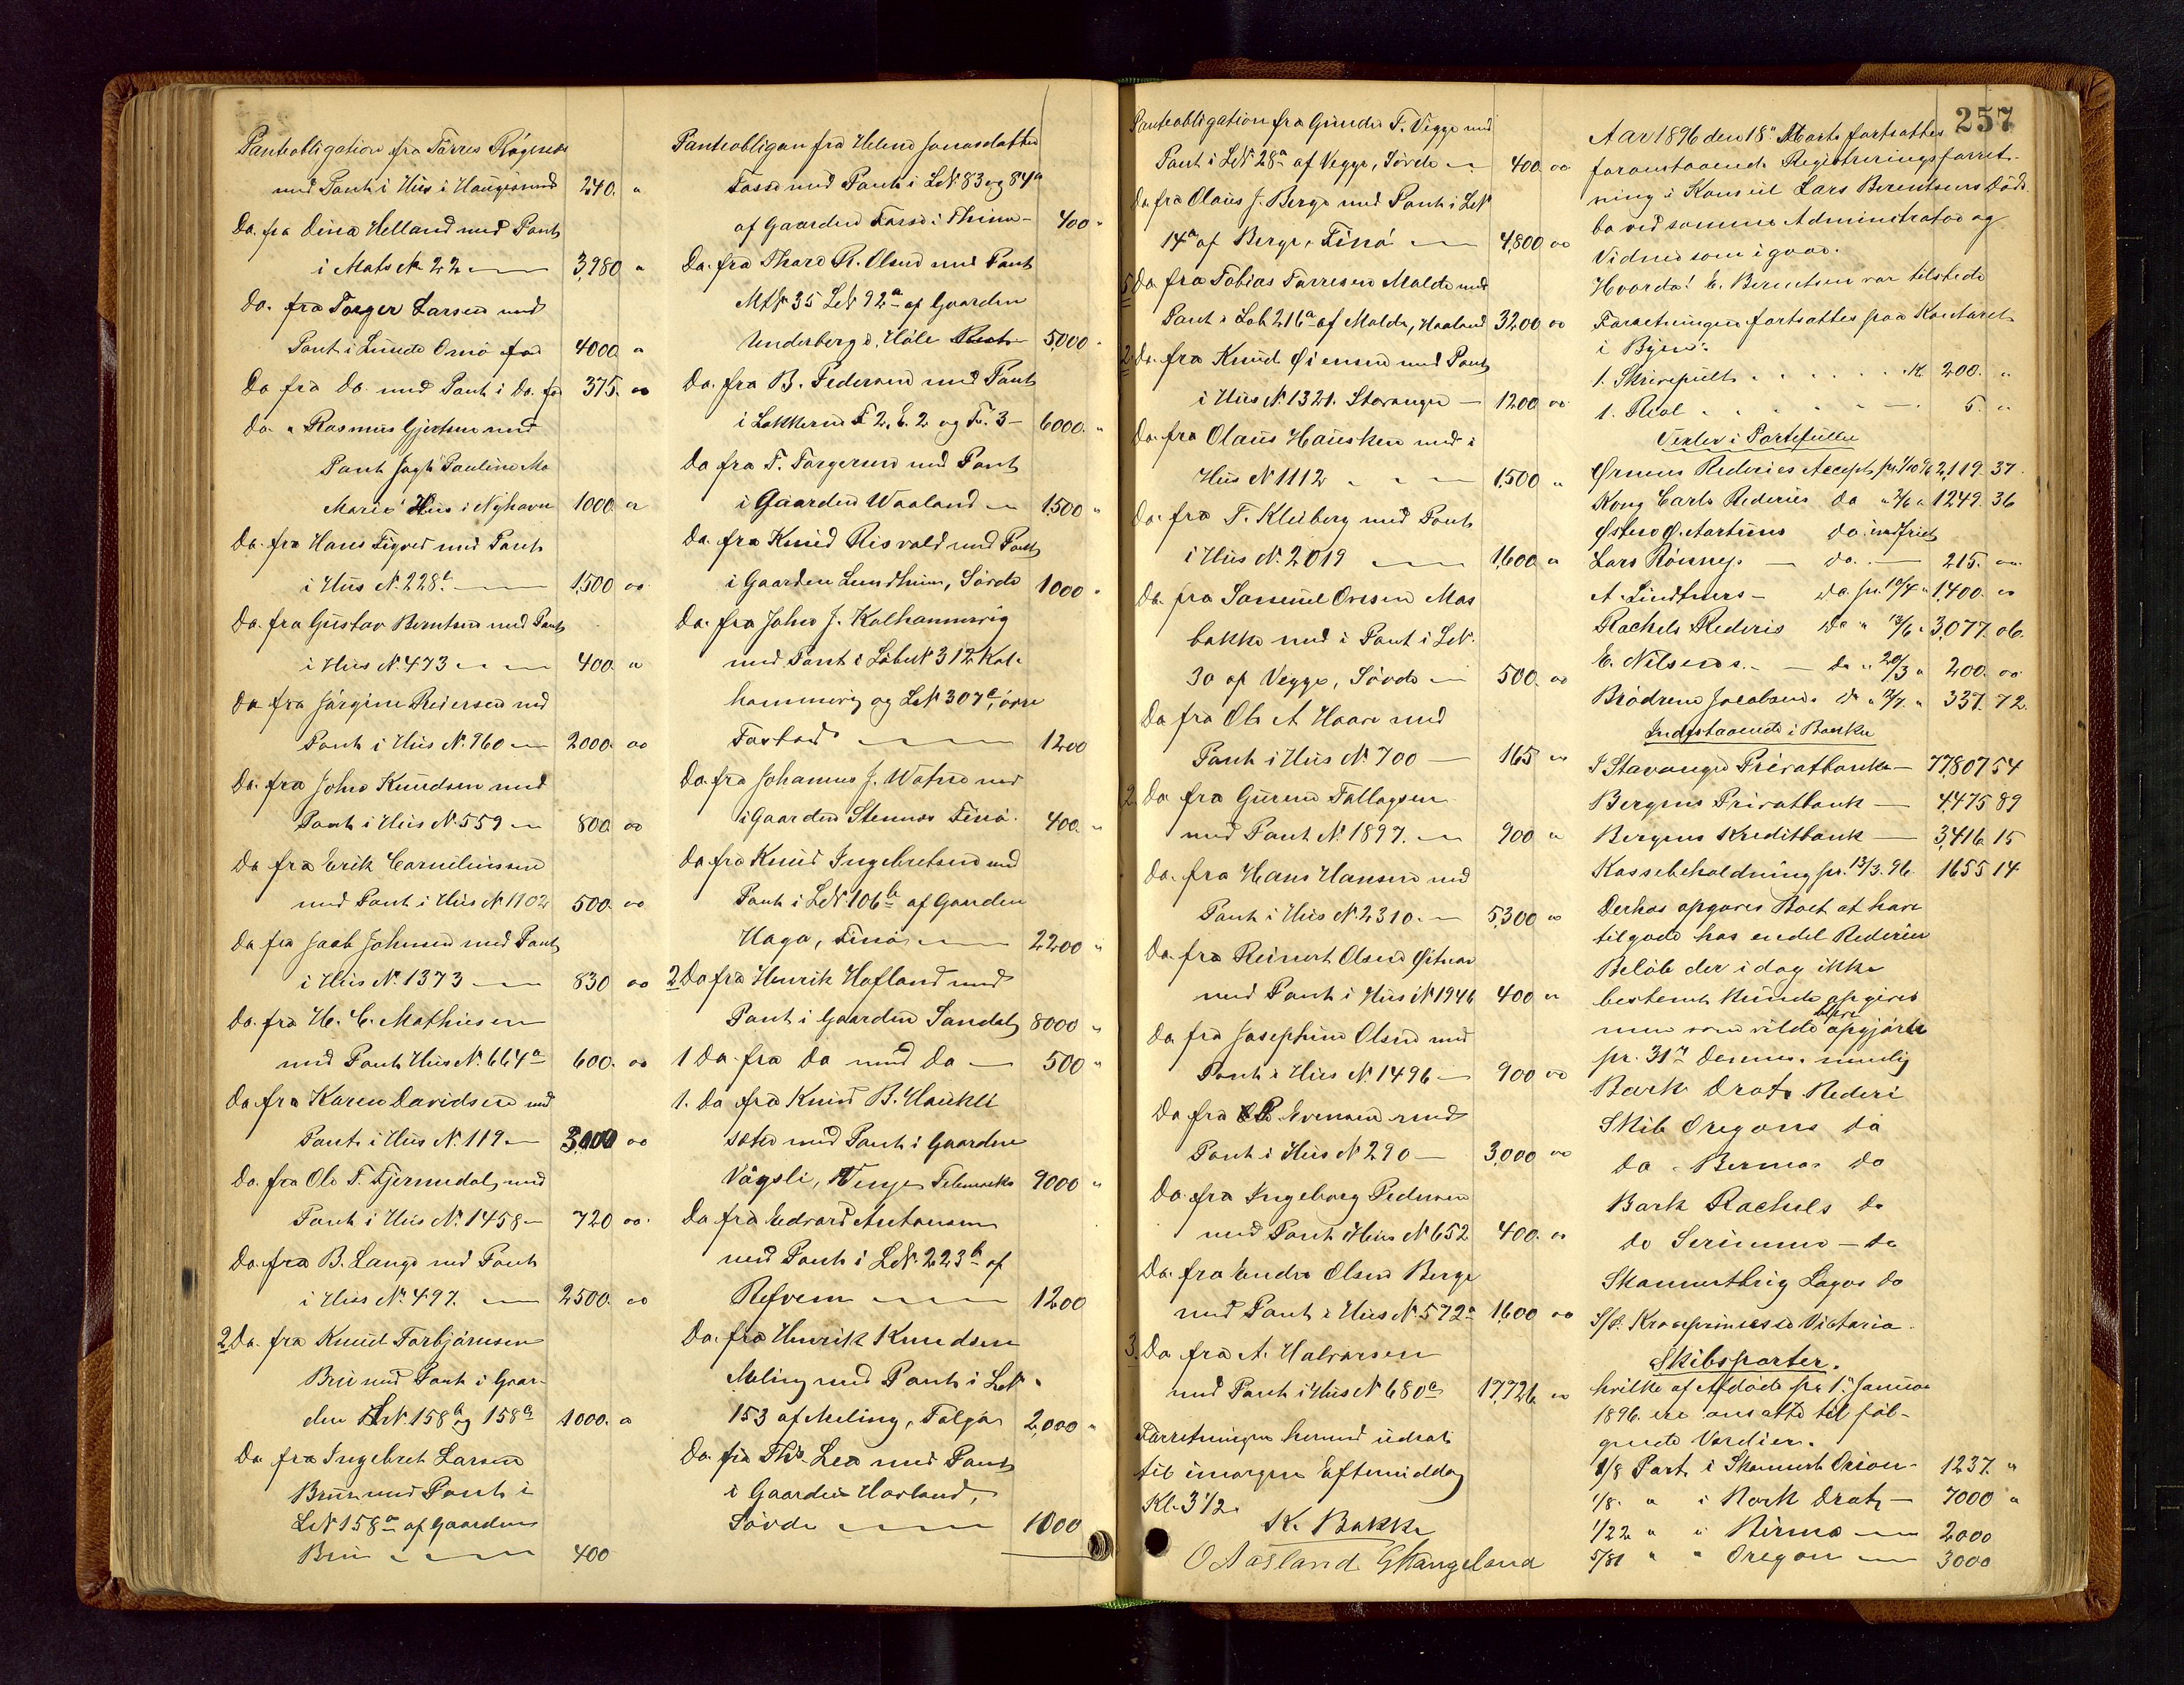 Panteobligation fra Torres Rogenes
med Pant i Hus i Haugesund 240. "
Do. fra Dina Helland med Pant
i Mats No 22 3,980 "
Do. fra Torger Larsen med
Pant i Lunde Omø for 4000 "
Do fra Do. med Pant i Do. for 375. oo
Do. " Rasmus Gjertsen med
Pant Jagt Pauline Ma
Marie Hus i Nyhavn 1000 "
Do. fra Hans Sigved med Pant
i Hus No. 228b 1,500 oo
Do. fra Gustav Berntsen med Pant
i Hus No. 473 400. "
Do fra Jörgine Reiersen med
Pant i Hus No. 960 2000. oo
Do. fra John Knudsen med
Pant i Hus No 559 800. oo
Do fra Erik Corneliussen
med Pant i Hus No 1102 500. oo
Do fra Jacob Johnsen med Pant
i Hus No. 1373 830 oo
Do. fra H. C. Mathiesen
med Pant Hus No. 664a 600. oo
Do. fra Karen Davidsen med
Pant i Hus No. 119 3,000 oo
Do. fra Ole T. Tjernedal, med
Pant i Hus No. 1458 720 oo.
Do. fra B. Lange med Pant
i Hus No. 497. 2500. oo
2 Do. fra Knud Torbjörnsen
Bru med Pant i Gaar-
den LNo 158b og 158c 1000. "
Do fra Ingebret Larsen
Bru med Pant i
LNo 158a af Gaarden
Bru 400
Panteobligan fra Helene Jonasdatter
Fosse med Pant i LNo. 83 og 84a
af Gaarden Fosse i Thime 400 "
Do. fra Thore R. Olsen med Pant
MtNo 35 LNo 92a af Gaarden
Underberge, Höle 5,000 "
Do. fra B. Pedersen med Pant
i Lokkerne F 2, E. 2 og F. 3 6000. "
Do fra T. Torgersen med Pant
i Gaarden Waaland 1,500 "
Do. fra Knud Risvold med Pant
i Gaarden Lundheim, Sövde 1000 "
Do. fra John J. Kolhammervig
med Pant i LöbeNo 312 Kol-
hammervig og LNo. 307a, övre
Tostad 1200
Do. fra Johannes J. Watne med
i Gaarden Stennes Finö. 400. "
Do. fra Knud Ingebretsen med
Pant i LNo 106b af Gaarden
Haga, Finö 2200 "
2 Do fra Henrik Hofland med
Pant i Gaarden Sandal 8000 "
1 Do. fra Do med Do 500 "
1. Do fra Knud B. Haukli
sæter med Pant i Gaarden
Vågsli, Vinje Telemarke 9000 "
Do fra Edvard Antonsen
med Pant i LNo. 223b af
Refvem 1200
Do. fra Henrik Knudsen
Meling med Pant i LNo.
153 af Meling, Talgö 2,000 "
Do. fra Ths. Lea med Pant
i Gaarden Hovland,
Sövde 1000
Panteobligation fra Gunder T. Vegge med
Pant i LNo 28a af Vegge, Sövde 400. oo
Do fra Olaus J. Berge med Pant i LNo
14a af Berge, Finö 4,800 oo
5 Do fra Tobias Torresen Molde med
Pant i Lob. 216a af Molde, Haaland 3200 oo
2 Do. fra Knud Øiensen med Pant
i Hus No. 1321. Stavanger 1200 oo
Do. fra Olaus Hausken med i
Hus No 1112 1,500 "
Do. fra T. Kleiberg med Pant
i Hus No. 2019 1,600. "
Do. fra Samuel Ovesen Mos
bakke med i Pant i LNo.
30 af Vegge, Sövde 500. oo
Do fra Ole A Haave med
Pant i Hus No. 700 165 "
2. Do fra Gurine Tallagsen
med Pant No. 1897. 900 "
Do. fra Hans Hansen med
Pant i Hus No 2310. 5,300 oo
Do. fra Reinert Olsen
med Pant i Hus No 1946 400 "
Do fra Josephine Olsen med
Pant i Hus No. 1496 900 oo
Do fra Evensen med
Pant i Hus No 290 3,000 oo
Do. fra Ingeborg Pedersen
med Pant Hus No 652 400. "
Do. fra Endre Olsen Berge
med Pant i Hus No. 572a 1,600 oo
3. Do fra A. Halvorsen
med Pant i Hus No 680a 17,726 "
Forretningen herved udsat
til imorgen Eftermiddag
Kl. 3 1/2.
K. Bakke
O Aasland. G Hangeland
257
Aar 1896 den 18" Marts fortsattes
foranstaaende Registreringsforret-
ning i Konsul Lars Berentsens Döds
bo ved samme Administrator og
Vidner som igaar.
Hvorda! E. Berentsen var tilstede
Forretningen fortsattes paa Kontoret
i Byen.
1. Skrivepult . . . . . . K. 200. "
1. Reol . . . . . 5. "
Vexler i Portefulle
Ørnens Rederies Accept pr. 1/10 96 2,119. 37.
Kong Carls Rederies do " 2/6 " 1249. 36
do. indfriet
Lars Rönney. do. 215. oo.
A. Lindtners do. pr. 10/4 " 1,400. oo
Rachels Rederis do " 13/6 " 3,077. 06.
E. Nilsens. do " 20/3 " 200. oo
Brödrene Jacobsens do " 2/7. " 337. 72.
Indestaaende i Banker
I Stavanger Privatbank 77,807 54
Bergens Privatbank 4,475 89
Bergens Kreditbank 3,416 15
Kassebeholdning pr. 13/3. 96. 1655 14
Derhos opgaves Boet at have
tilgode hos endel Rederier
Belöb der idag ikke
bestemt kunde opgives
men som vilde blive opgjorte
pr. 31te Dennes. nemlig
Bark Drots Rederi
Skib Oregons do
do Birmas do
Bark Rachels do
do Serimner do
Skonnertbrig Lagos do
S/S. Kronprinsesse Victoria.
Skibsparter.
hvilke af Afdöde pr. 1" Januar
1896. ere ansatte til föl-
gende Værdier.
1/8 Part i Skonnert Orion 1237. "
1/8. " i Bark Drot 7000 "
1/22 " i Birma 2000
5/81 " " Oregon 3000